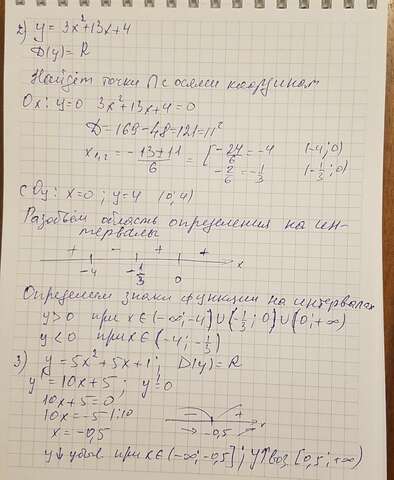 2) y = 3x²+13x+4
D(y) = R
Найдём точки ∩ с осями координат
Ox: y=0 3x²+13x+4=0
D=169-48=121=11²
x₁,₂ = -13±11/6 = [-24/6 = -4 (-4;0)
-2/6 = -1/3 (-1/3;0)
с Oy: x=0; y=4 (0;4)
Разобьём область определения на ин-
тервалы
+ - + +
-4 -1/3 0 x
Определим знаки функции на интервалах
y>0 при x∈(-∞;-4)∪(-1/3;0)∪(0;+∞)
y<0 при x∈(-4;-1/3)
3) y = 5x²+5x+1; D(y)=R
y' = 10x+5; y'=0
10x+5=0
10x=-5 |:10
x=-0,5
- + -0,5 x
y↓ убыв. при x∈(-∞;-0,5]; y↑воз. [0,5;+∞)